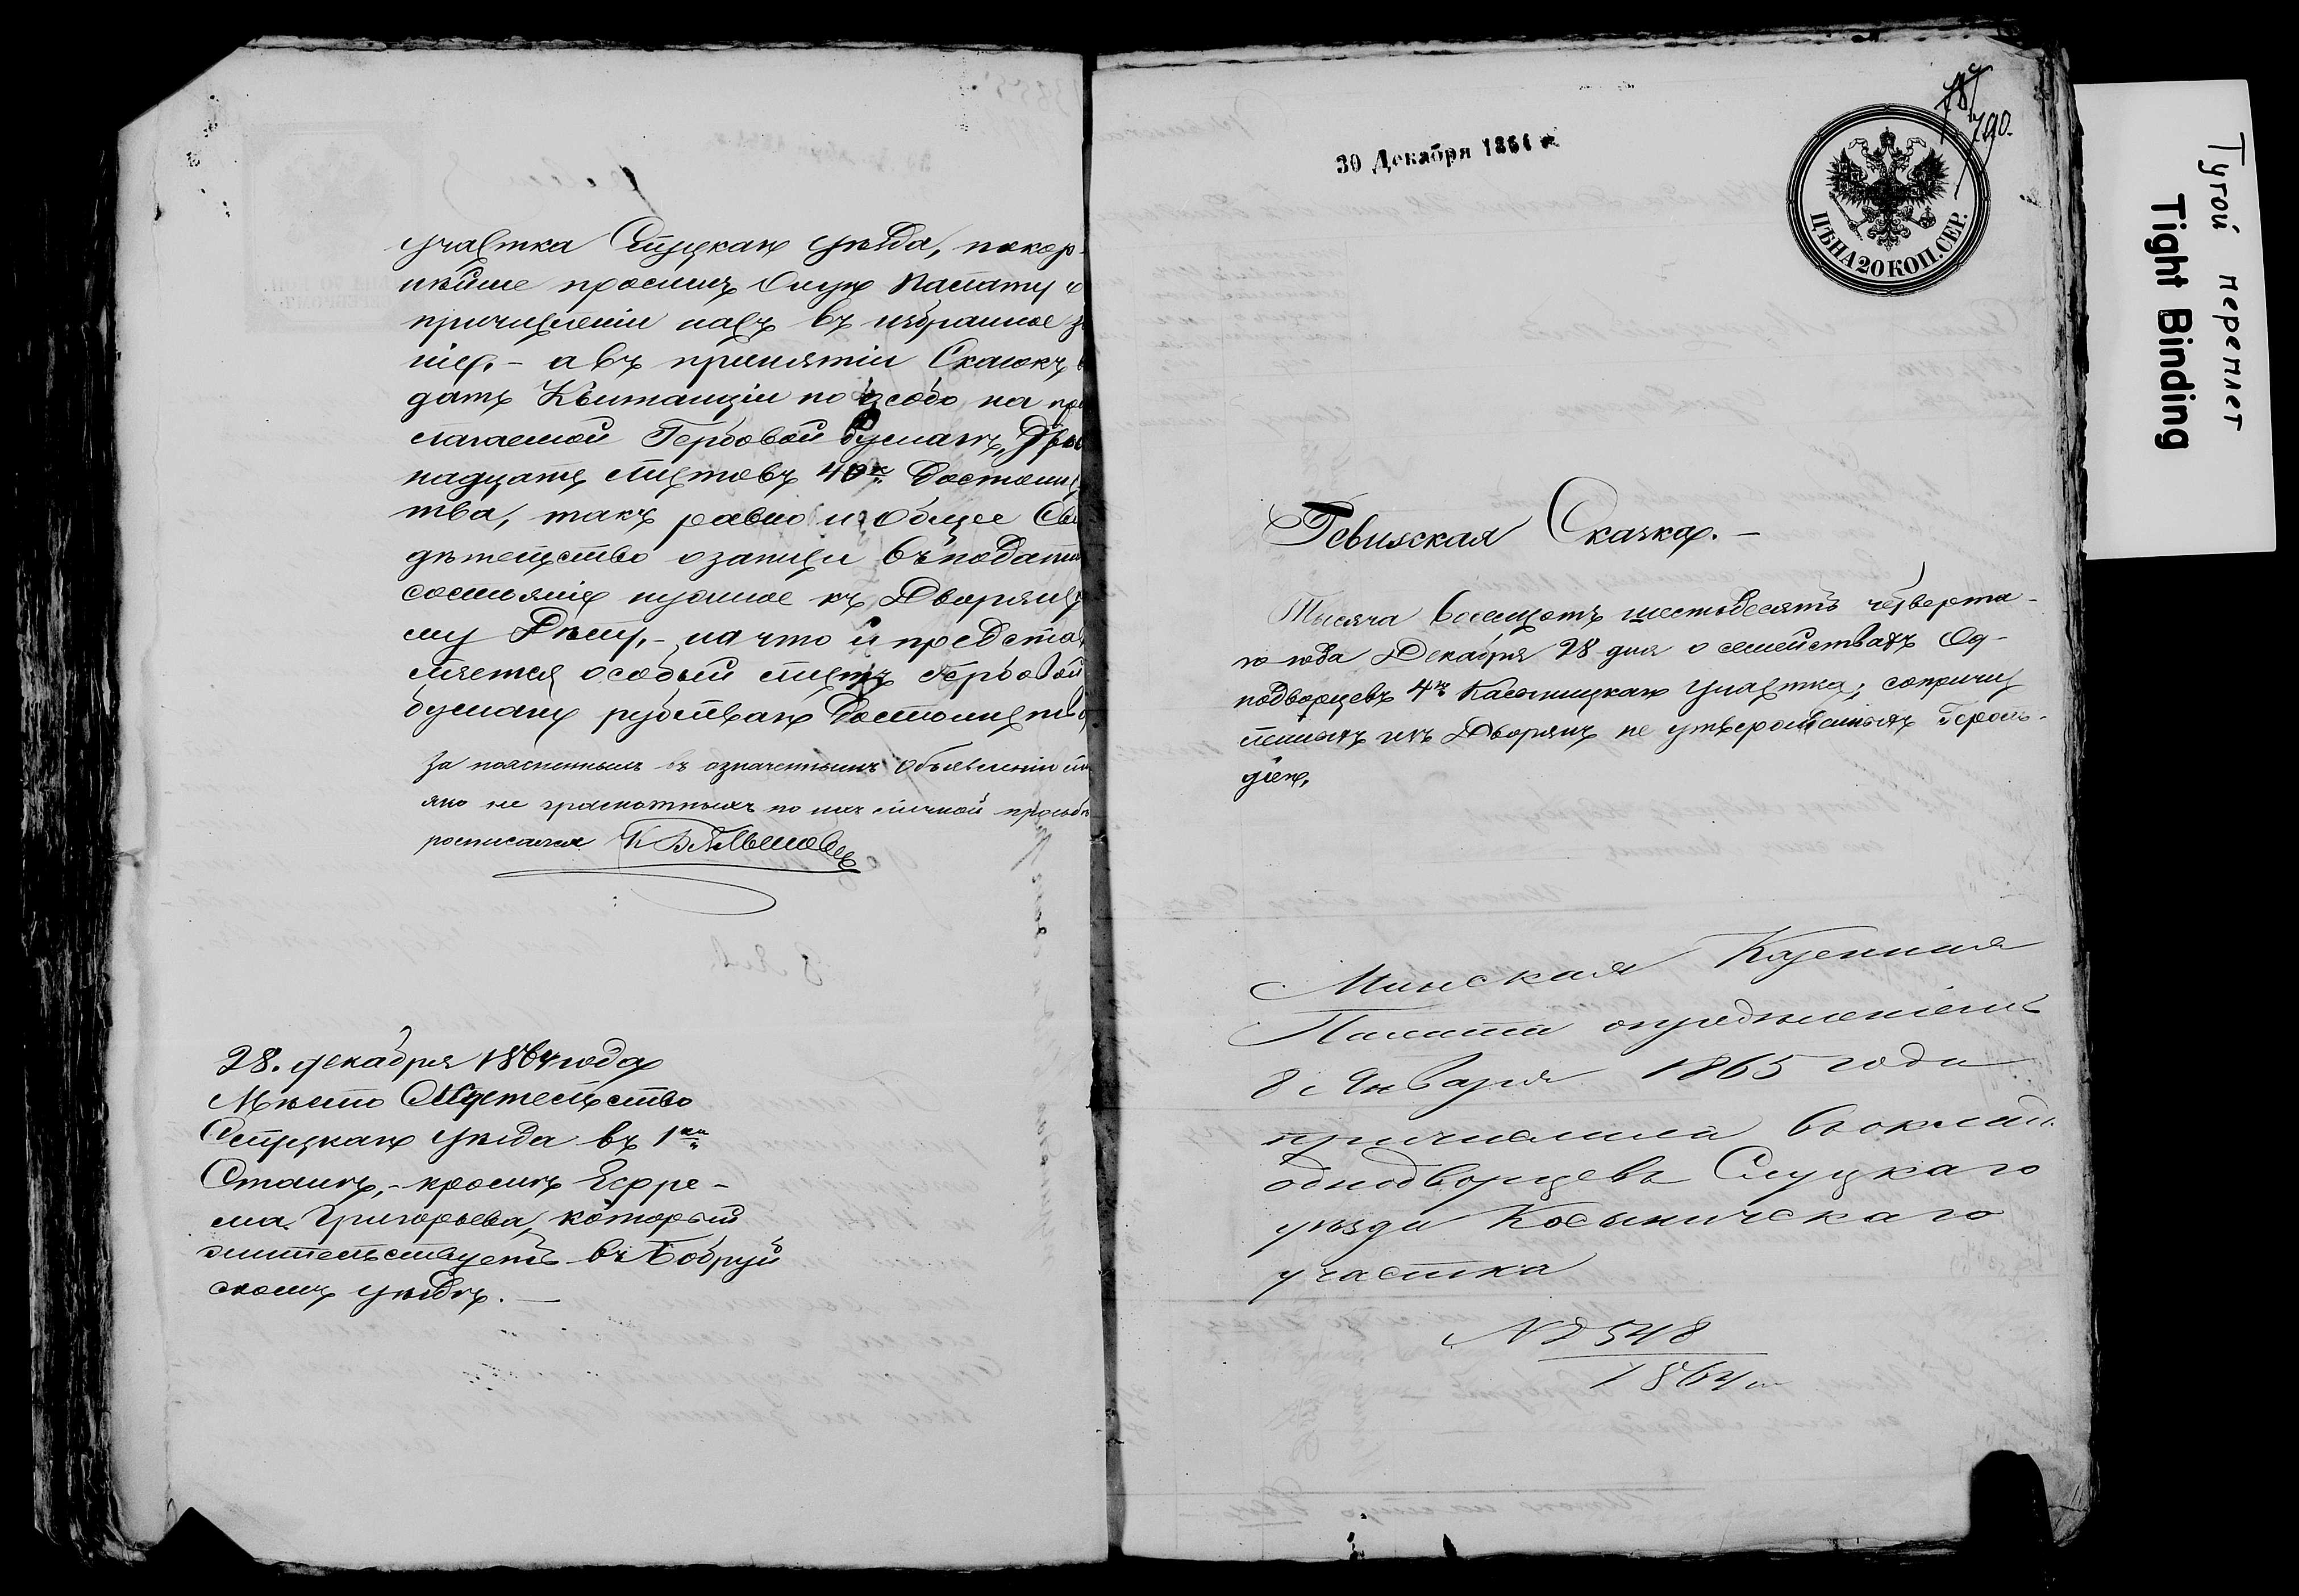 участка Слуцкаго уѣзда, покор-
нѣйше просимъ Оную Палату о
причисленіи насъ въ избранное
а въ принятіи Сказокъ
дать Квитанціи по особо на
лагаемой Гербовой бумагѣ,
надцать листовъ 40к. достоинс
тва, такъ равно и общее Сви
дѣтельство о записи въ податн
состояніе нужное къ Дворянс
му Дѣлу, - на что и предста
вляется особый листъ гербовой
бумаги рублеваго достоинства,
За поясненныхъ въ означенномъ объявленіи
яко не грамотныхъ по ихъ личной прозьбѣ
росписался К
28. декабря 1864 года
Мѣсто Жительство
Слуцкаго уѣзда въ 1мъ
Станѣ, - кромѣ Ефре-
ма Григорьева, который
жительствуетъ въ Бобруй
скомъ уѣздѣ. —
30 Декабря 1864 г.
790.
ЦѢНА 20 КОП. СЕР.
Ревизская Сказка. —
Тысяча восемьсотъ шестьдесятъ четверта-
го года Декабря 28 дня о семействахъ Од-
нодворцевъ 4го участка, сопричис
ленныхъ изъ Дворянъ не утвержденныхъ Героль-
діею,
Минская Казенная
Палата опредѣленіемъ
8 Января 1865 года
причислила в окладъ
однодворцевъ Слуцкаго
уѣзда
участка
№ 2548
1864 г.
Тугой переплет
Tight Binding